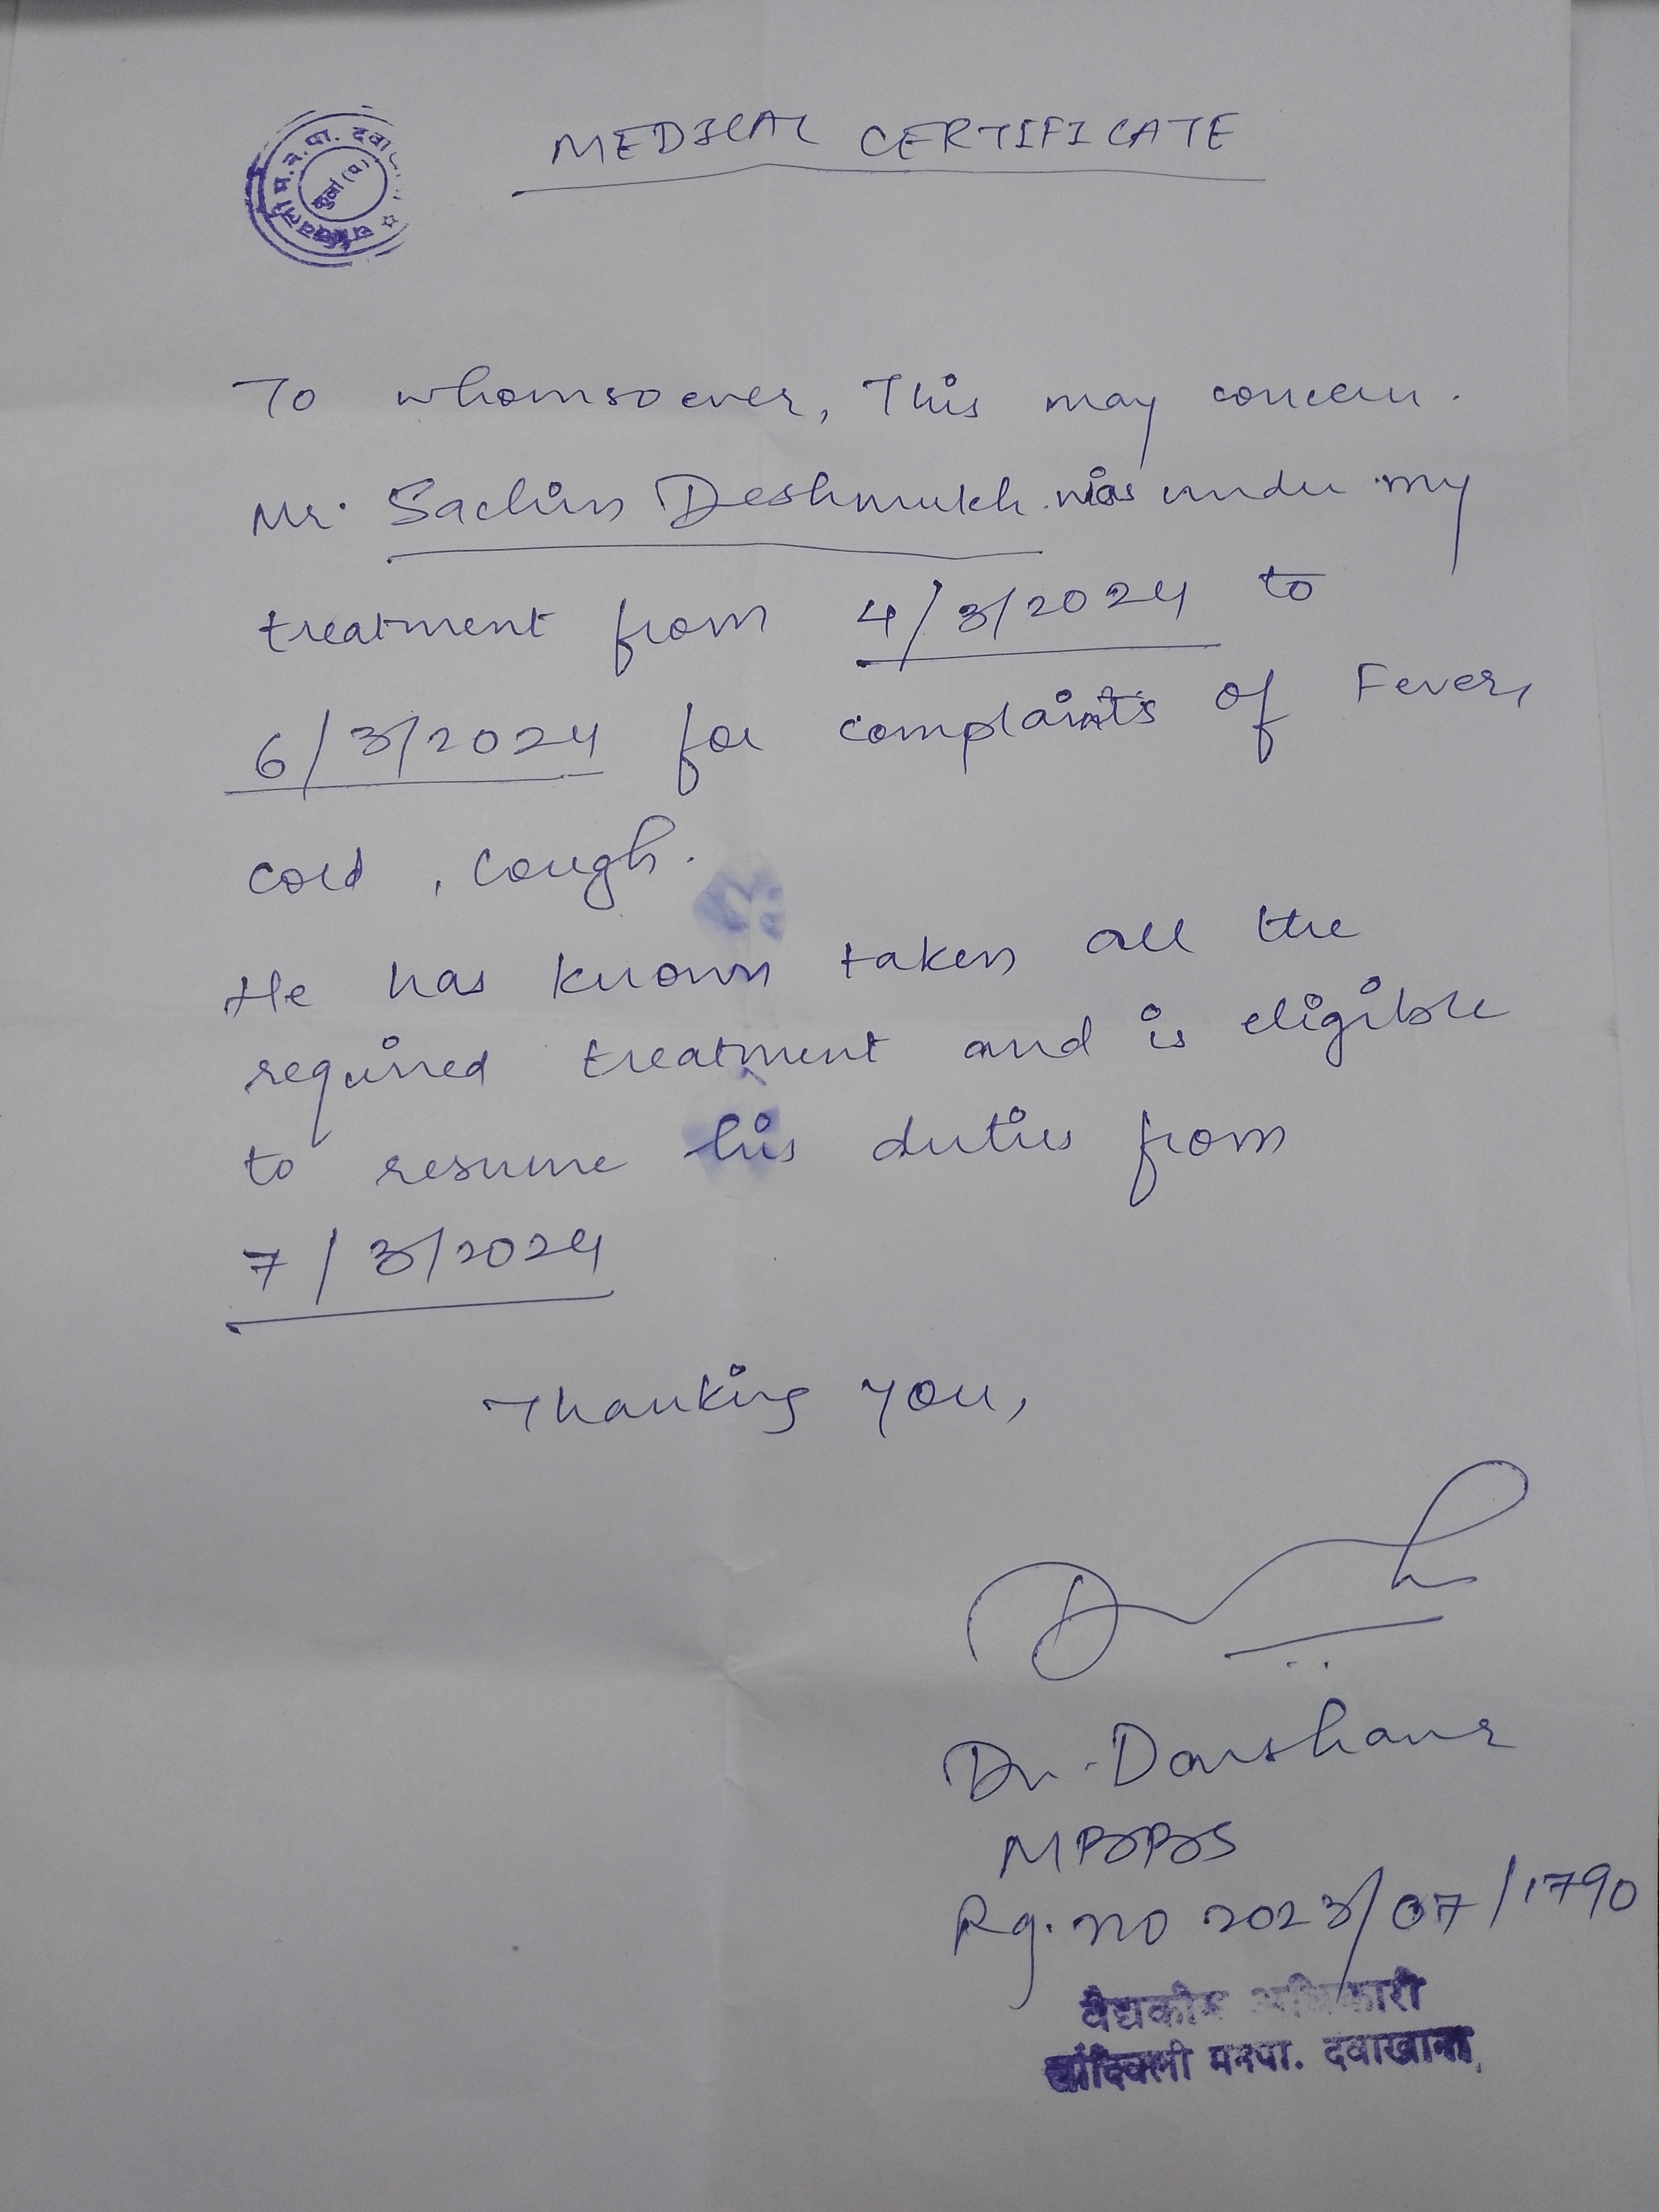 म.न.पा. दवा
कुर्ला (प)
MEDICAL CERTIFICATE
To whomsoever, This may concern.
Mr. Sachin Deshmukh was under my
treatment from 4/3/2024 to
6/3/2024 for complaints of Fever,
cold, cough.
He has known taken all the
required treatment and is eligible
to resume his duties from
7/3/2024
Thanking you,
Dr. Darshana
MBBS
Rg. no 2023/07/1790
वैद्यकीय अधिकारी
चांदिवली मनपा. दवाखाना